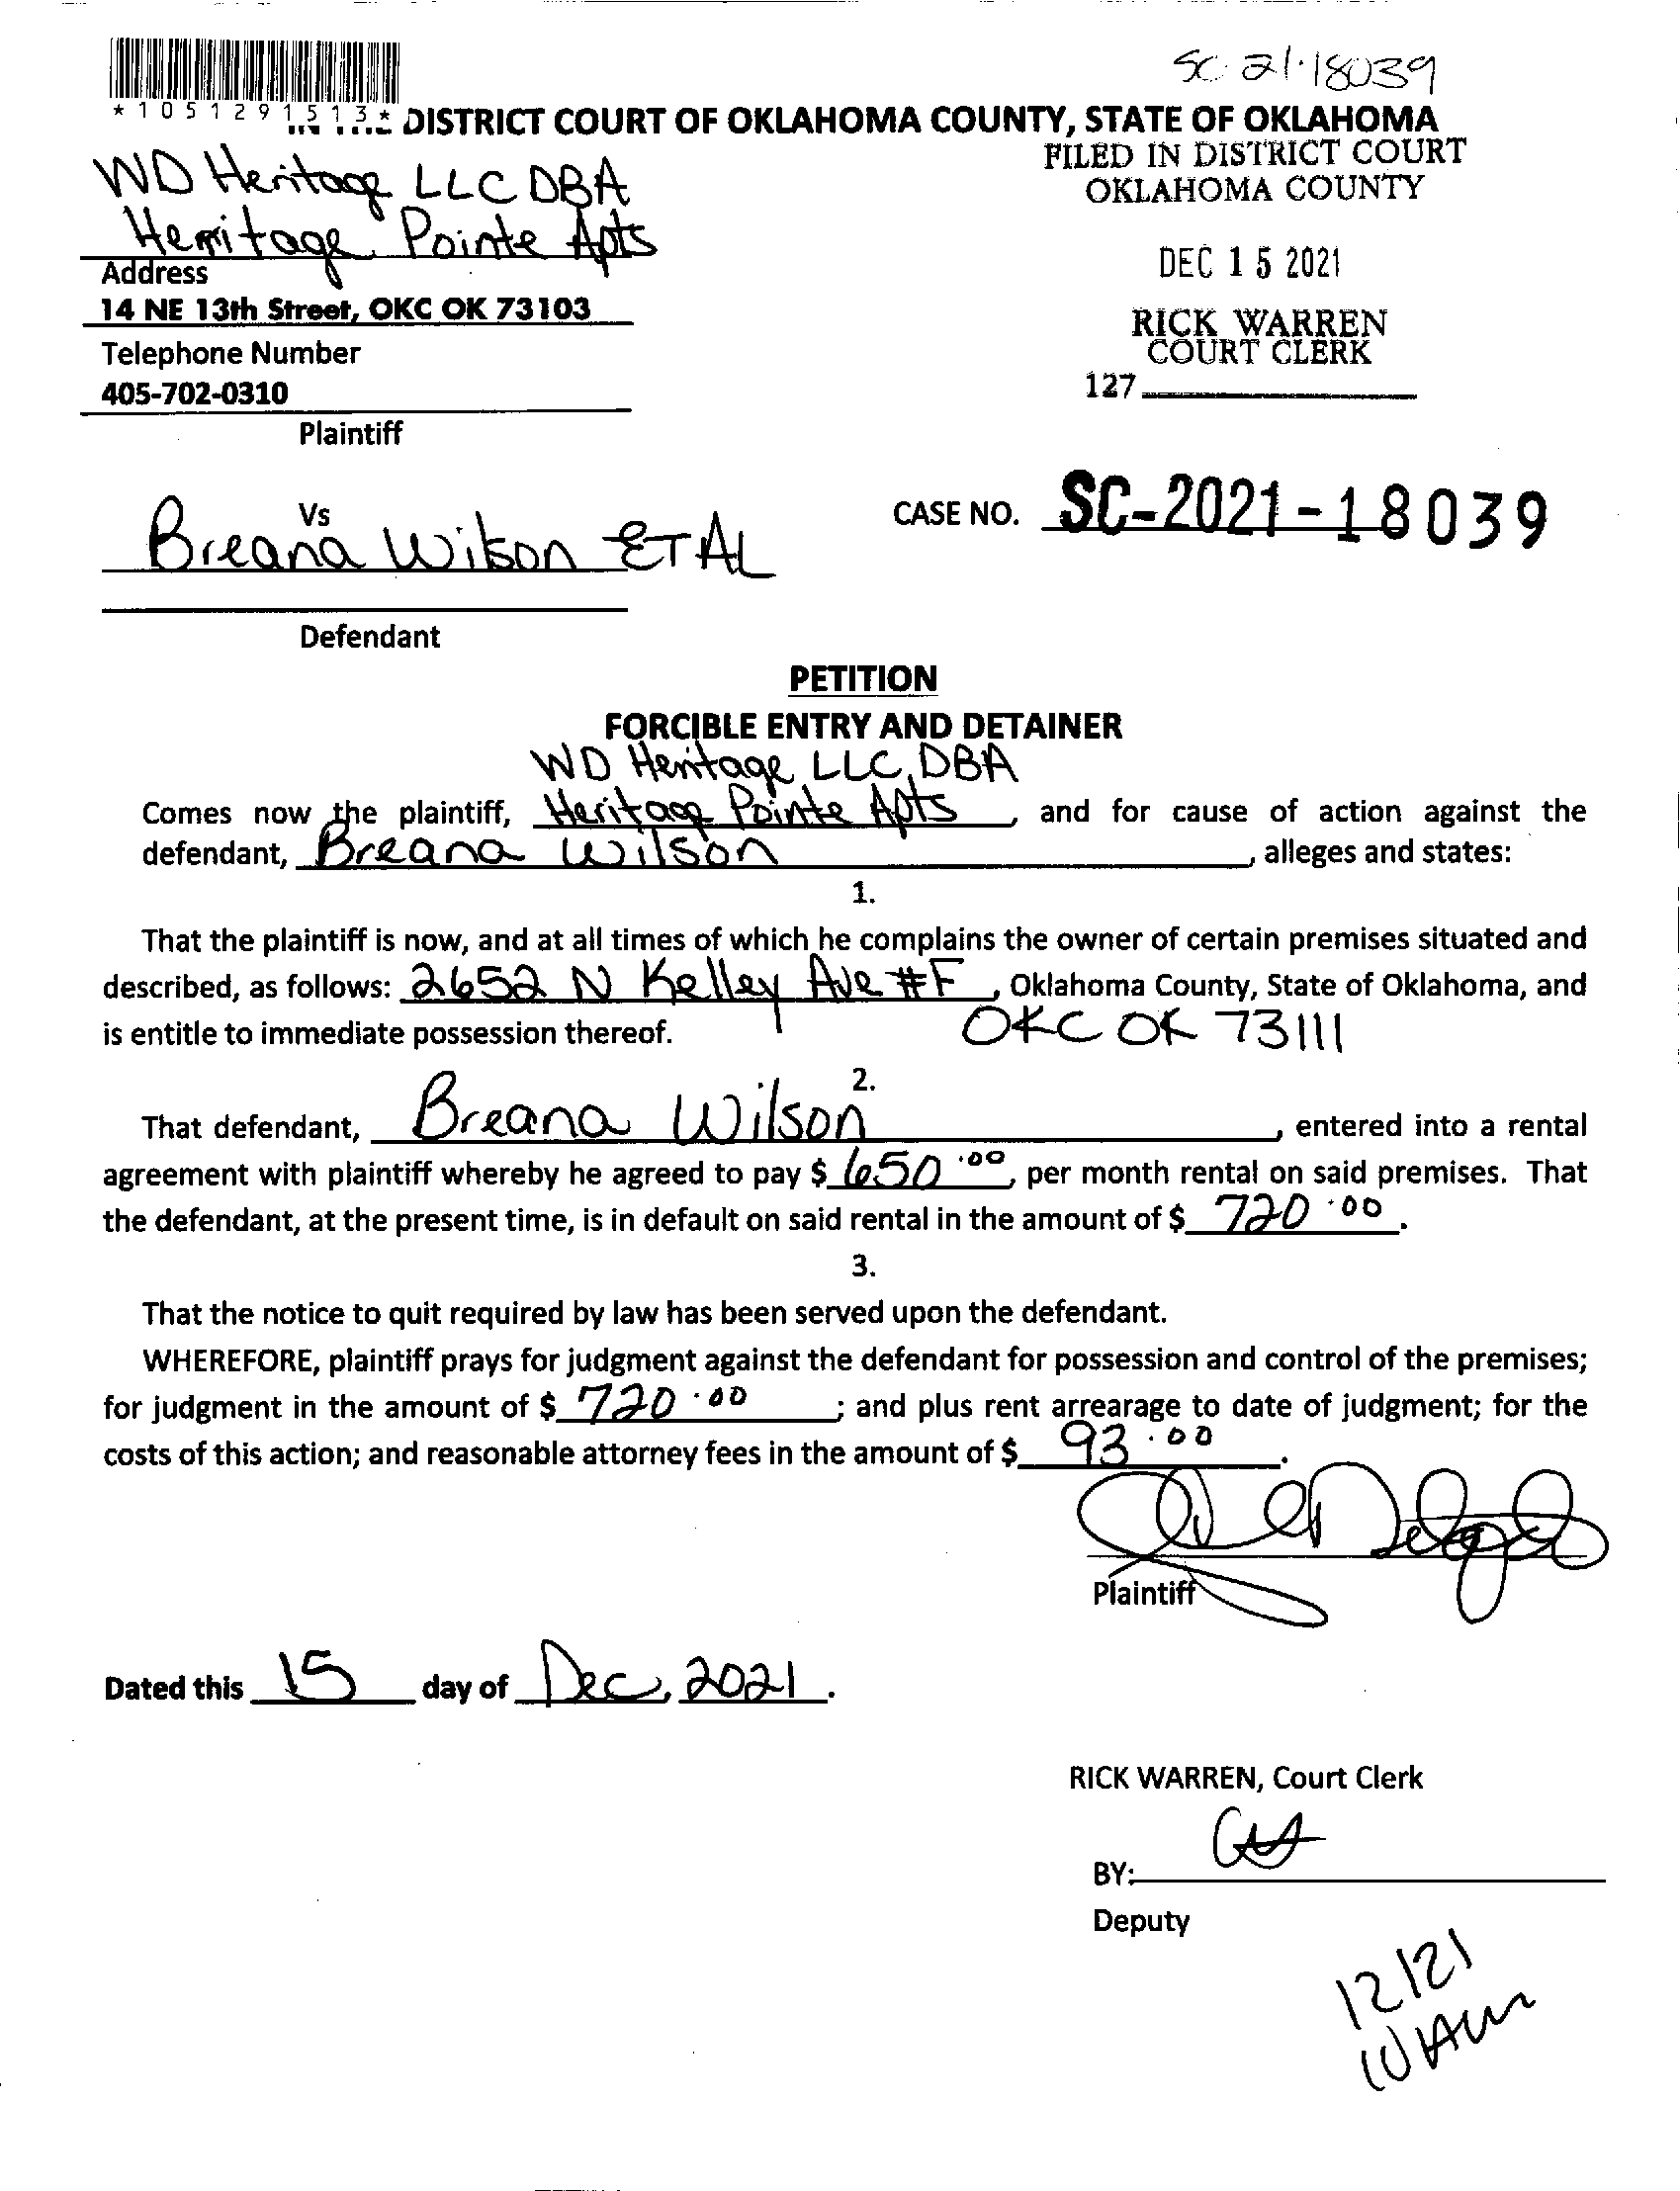 SC 21-18039
*1051291513* DISTRICT COURT OF OKLAHOMA COUNTY, STATE OF OKLAHOMA
FILED IN DISTRICT COURT
OKLAHOMA COUNTY
DEC 15 2021
RICK WARREN
COURT CLERK
127
WD Heritage LLC DBA
Heritage Pointe Apts
Address
14 NE 13th Street, OKC OK 73103
Telephone Number
405-702-0310
Plaintiff
Vs
Breana Wilson ET AL
CASE NO. SC-2021-18039
Defendant
PETITION
FORCIBLE ENTRY AND DETAINER
WD Heritage LLC, DBA
Comes now the plaintiff, Heritage Pointe Apts, and for cause of action against the
defendant, Breana Wilson, alleges and states:
1.
That the plaintiff is now, and at all times of which he complains the owner of certain premises situated and
described, as follows: 2652 N Kelley Ave #F, Oklahoma County, State of Oklahoma, and
OKC OK 73111
is entitle to immediate possession thereof.
2.
That defendant, Breana Wilson, entered into a rental
agreement with plaintiff whereby he agreed to pay $ 650.00, per month rental on said premises. That
the defendant, at the present time, is in default on said rental in the amount of $ 720.00.
3.
That the notice to quit required by law has been served upon the defendant.
WHEREFORE, plaintiff prays for judgment against the defendant for possession and control of the premises;
for judgment in the amount of $ 720.00; and plus rent arrearage to date of judgment; for the
costs of this action; and reasonable attorney fees in the amount of $ 93.00.
Plaintiff
Dated this 15 day of Dec, 2021.
RICK WARREN, Court Clerk
BY:
Deputy
12/21
10 AM